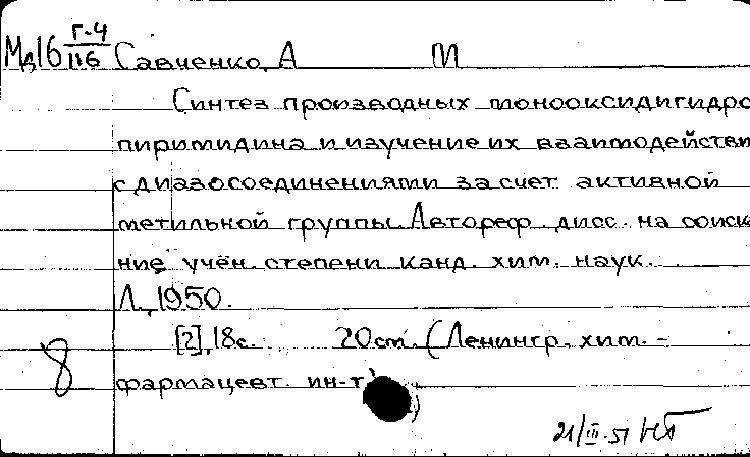 Мд16 Г-4/116 Савченко, А М
Синтез производных монооксидигидро
пиримидина и изучение их взаимодействи
с диазосоединениями за счет активной
метильной группы. Автореф. дисс. на соиска
ние учён. степени канд. хим. наук.
Л., 1950.
[2], 18с. 20см. (Ленингр. хим.-
фармацевт. ин-т)
8
21/III-51